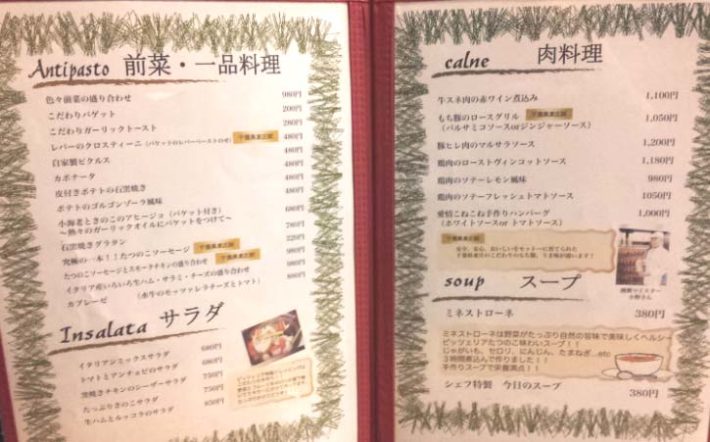 Antipasto 前菜・一品料理
色々前菜の盛り合わせ 980円
こだわりバゲット 200円
こだわりガーリックトースト 280円
レバーのクロスティーニ(バゲットのレバーペーストのせ) 千葉県東庄町 480円
自家製ピクルス 480円
カポナータ 480円
皮付きポテトの石窯焼き 480円
ポテトのゴルゴンゾーラ風味 480円
小海老ときのこのアヒージョ(バケット付き) 680円
〜熱々のガーリックオイルにバケットをつけて〜
石窯焼きグラタン 780円
究極の一本!!たつのこソーセージ 千葉県東庄町
たつのこソーセージとスモークチキンの盛り合わせ 千葉県東庄町 980円
イタリア産いろいろ生ハム・サラミ・チーズの盛り合わせ
カプレーゼ (水牛のモッファレラチーズとトマト)
Insalata サラダ
イタリアンミックスサラダ 680円
トマトとアンチョビのサラダ
炭焼きチキンのシーザーサラダ 750円
たっぷりきのこサラダ 750円
生ハムとルッコラのサラダ 850円
calne 肉料理
牛スネ肉の赤ワイン煮込み 1,100円
もち豚のロースグリル 千葉県東庄町 1,050円
(バルサミコソースorジンジャーソース)
豚ヒレ肉のマルサラソース 1,200円
鶏肉のローストヴィンコットソース 1,180円
鶏肉のソテーレモン風味 980円
鶏肉のソテーフレッシュトマトソース 1050円
愛情こねこね手作りハンバーグ 1,000円
(ホワイトソースor トマトソース)
千葉県東庄町
安全、安心、おいしいをモットーに育てられた
soup スープ
ミネストローネ 380円
ミネストローネは野菜がたっぷり自然の旨味で美味しくヘルシー
ピッツェリアたつのこ味わいスープ!!
じゃがいも、セロリ、にんじん、たまねぎ…etc
3時間煮込んで作りました!!
手作りスープで栄養満点!!
シェフ特製 今日のスープ 380円